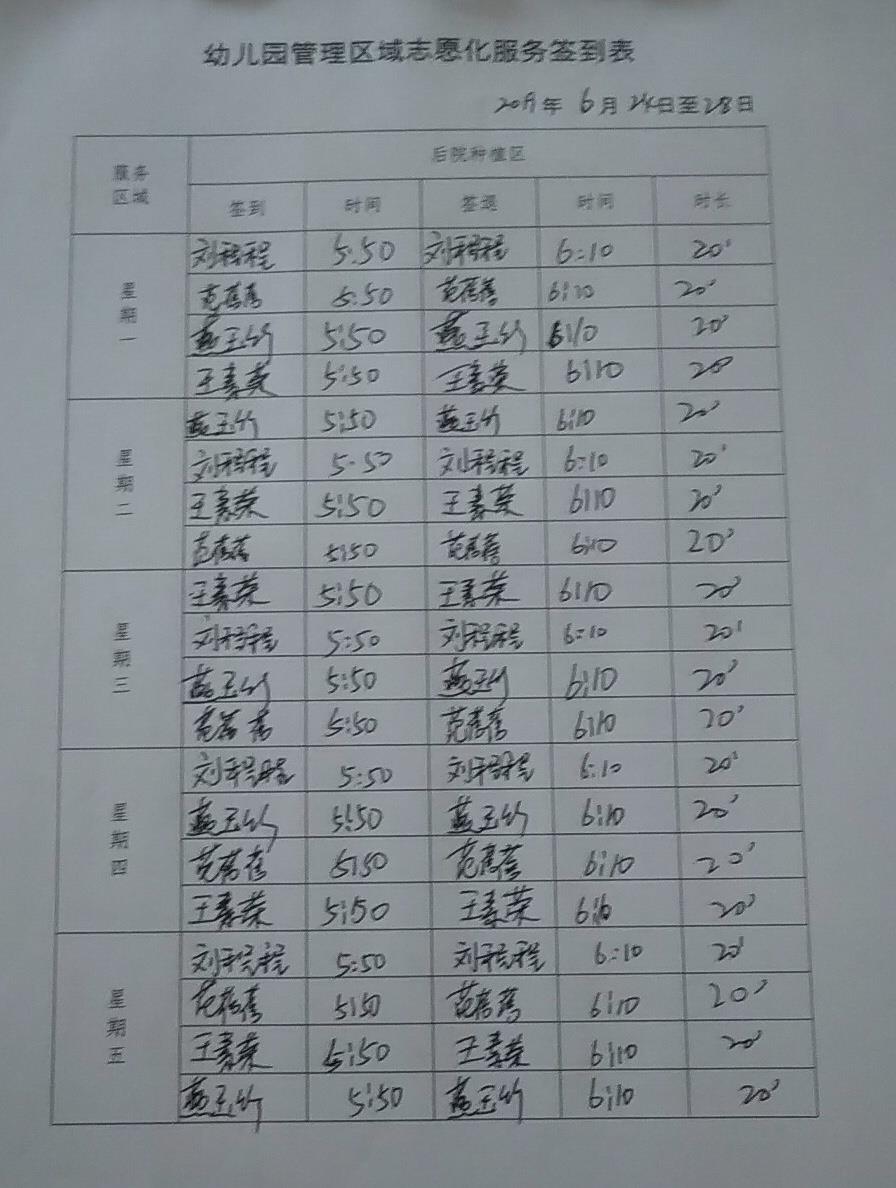 幼儿园管理区域志愿化服务签到表
2019年 6月 24日至28日
服务区域 后院种植区
签到 时间 签退 时间 时长
星期一
刘程程 5:50 刘程程 6:10 20'
范蓓蓓 5:50 范蓓蓓 6:10 20'
燕玉竹 5:50 燕玉竹 6:10 20'
王素荣 5:50 王素荣 6:10 20'
星期二
燕玉竹 5:50 燕玉竹 6:10 20'
刘程程 5:50 刘程程 6:10 20'
王素荣 5:50 王素荣 6:10 20'
范蓓蓓 5:50 范蓓蓓 6:10 20'
星期三
王素荣 5:50 王素荣 6:10 20'
刘程程 5:50 刘程程 6:10 20'
燕玉竹 5:50 燕玉竹 6:10 20'
范蓓蓓 5:50 范蓓蓓 6:10 20'
星期四
刘程程 5:50 刘程程 6:10 20'
燕玉竹 5:50 燕玉竹 6:10 20'
范蓓蓓 5:50 范蓓蓓 6:10 20'
王素荣 5:50 王素荣 6:10 20'
星期五
刘程程 5:50 刘程程 6:10 20'
范蓓蓓 5:50 范蓓蓓 6:10 20'
王素荣 5:50 王素荣 6:10 20'
燕玉竹 5:50 燕玉竹 6:10 20'